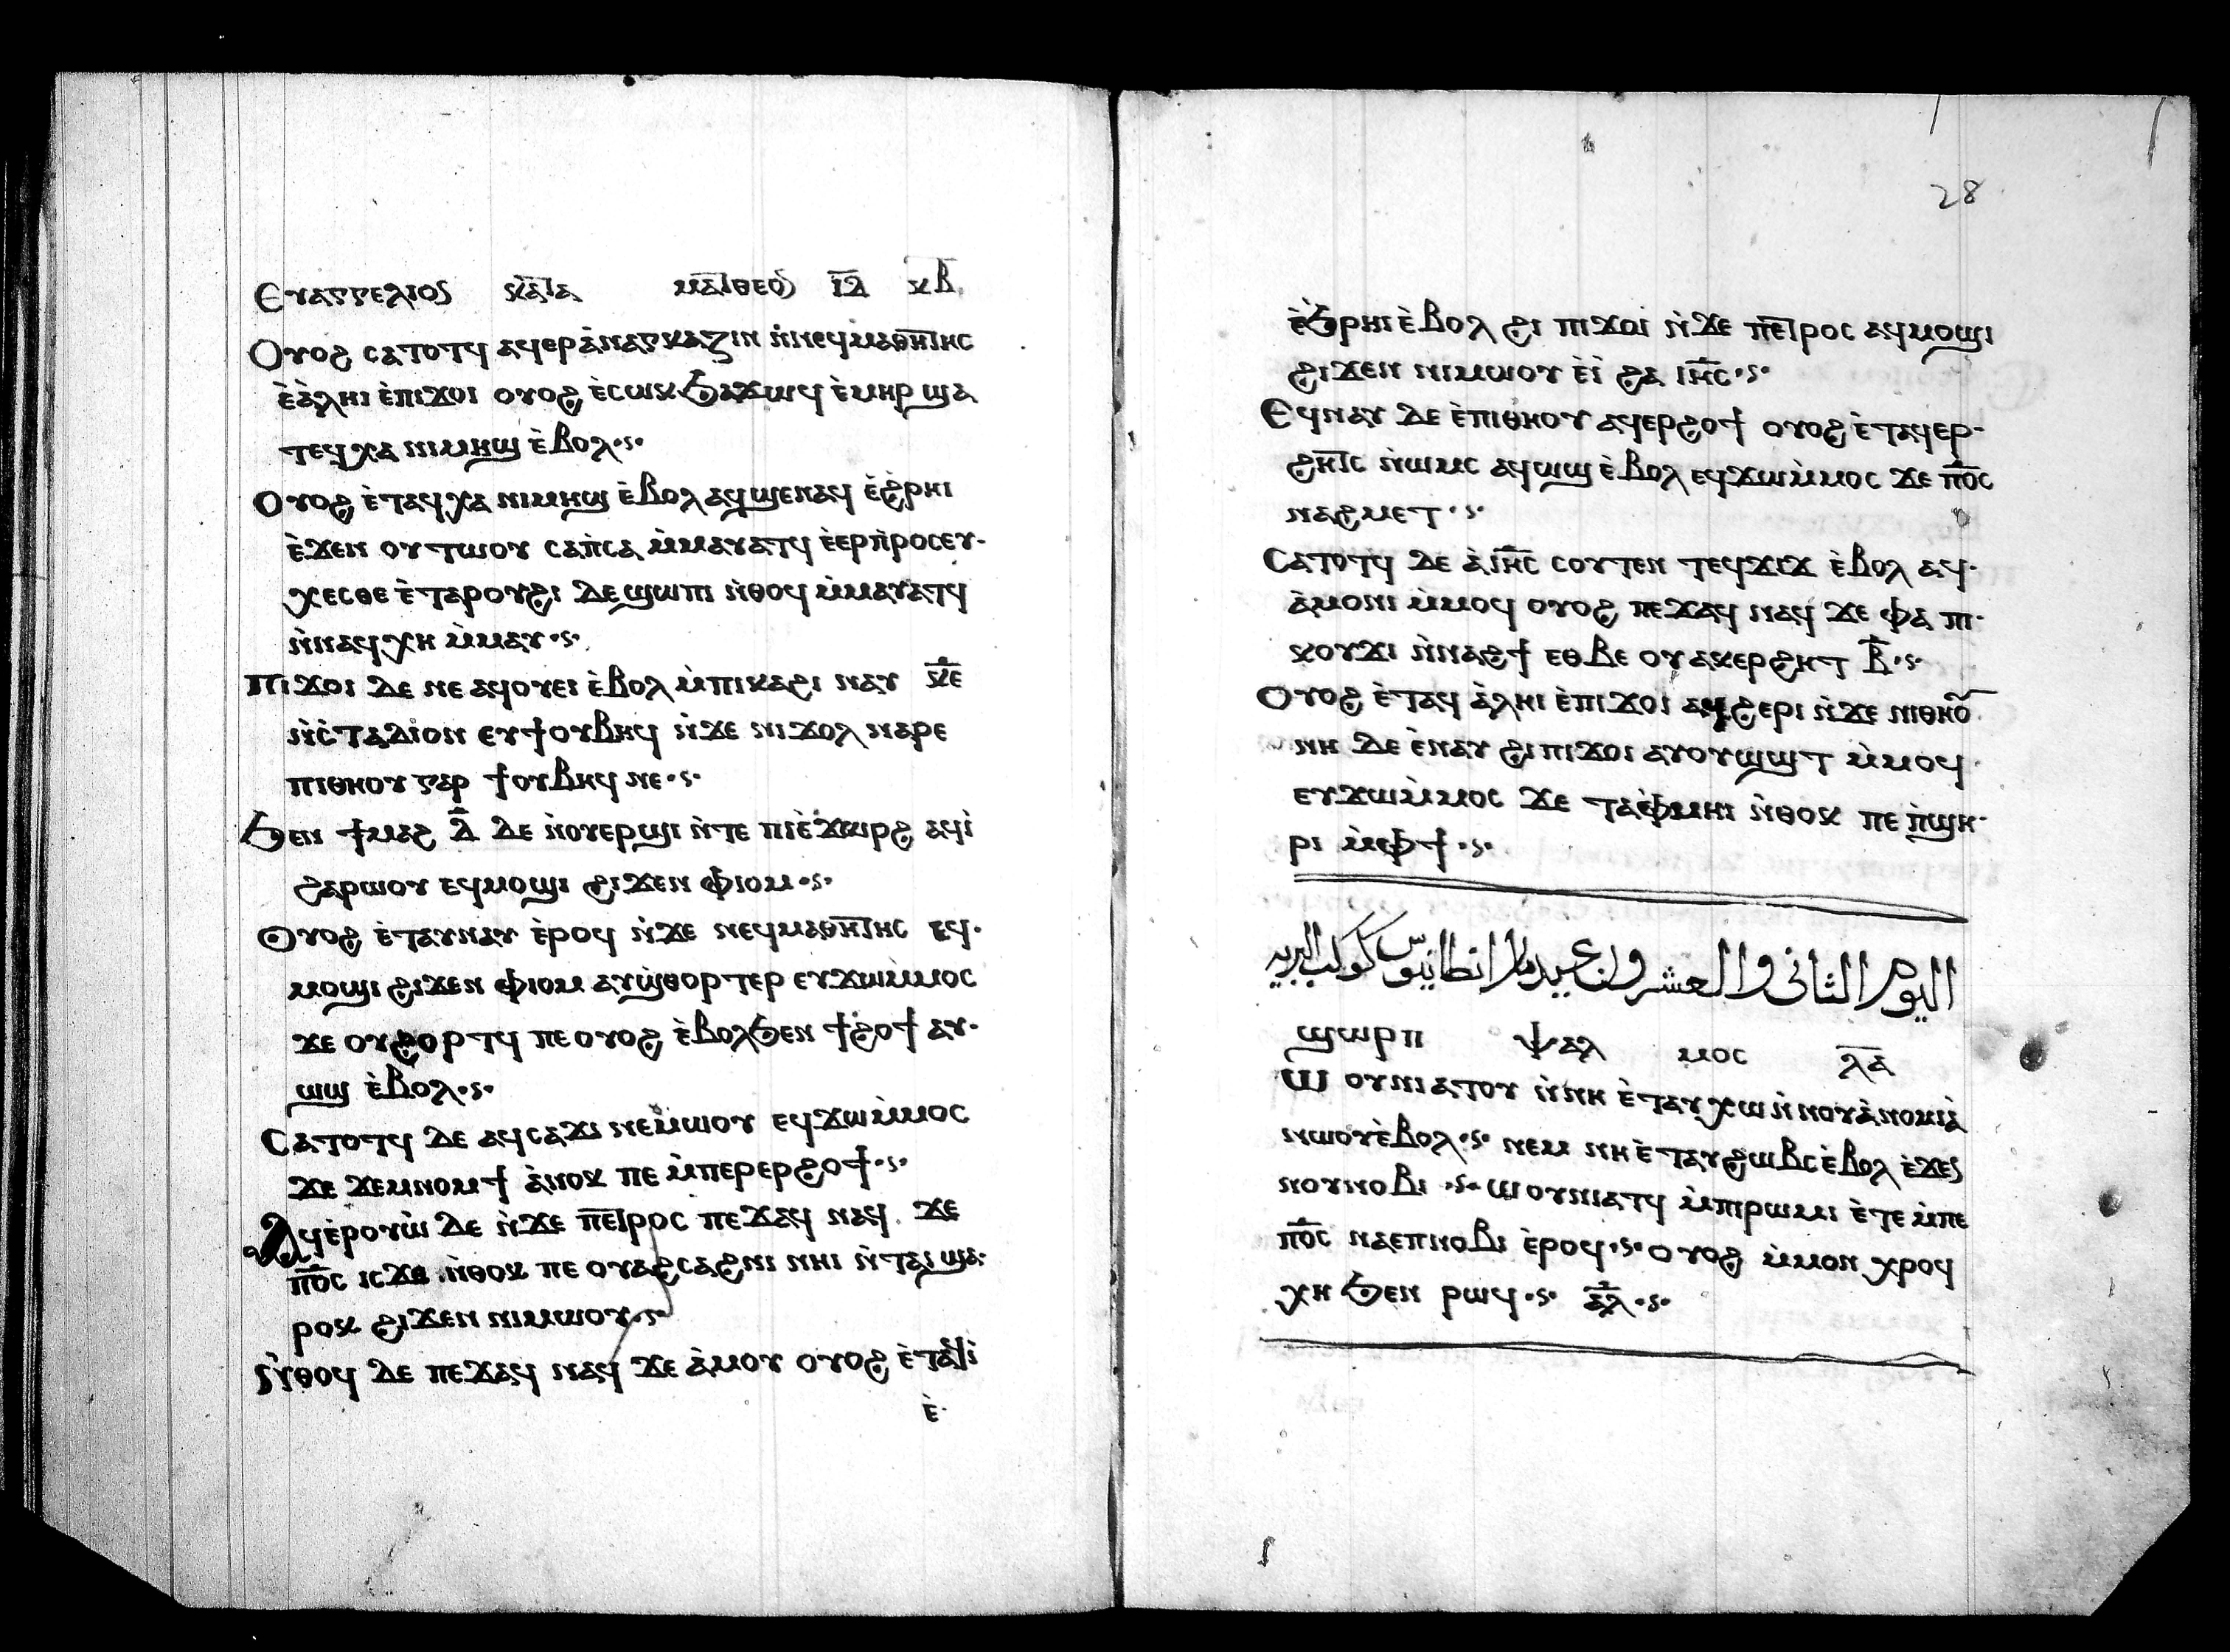 Ⲉⲩⲁⲅⲅⲉⲗⲓⲟⲥ ⲕⲁⲧⲁ ⲙⲁⲧⲑⲉⲟⲥ ⲓ̅ⲇ̅ ⲕ̅ⲃ̅
Ⲟⲩⲟϩ ⲥⲁⲧⲟⲧϥ ⲁϥⲉⲣⲁ̀ⲛⲁⲅⲕⲁⲍⲓⲛ ⲛ̀ⲛⲉϥⲙⲁⲑⲏⲧⲏⲥ
ⲉ̀ⲁ̀ⲗⲏⲓ ⲉ̀ⲡⲓϫⲟⲓ ⲟⲩⲟϩ ⲉ̀ⲥⲱⲕ ϧⲁϫⲱϥ ⲉ̀ⲙⲏⲣ ϣⲁ
ⲧⲉϥⲭⲁ ⲛⲓⲙⲏϣ ⲉ̀ⲃⲟⲗ
Ⲟⲩⲟϩ ⲉ̀ⲧⲁϥⲭⲁ ⲛⲓⲙⲏϣ ⲉ̀ⲃⲟⲗ ⲁϥϣⲉⲛⲁϥ ⲉ̀ϩⲣⲏⲓ
ⲉ̀ϫⲉⲛ ⲟⲩⲧⲱⲟⲩ ⲥⲁⲡ̀ⲥⲁ ⲙ̀ⲙⲁⲩⲁⲧϥ ⲉ̀ⲉⲣⲡ̀ⲣⲟⲥⲉⲩ-
ⲭⲉⲥⲑⲉ ⲉ̀ⲧⲁⲣⲟⲩϩⲓ ⲇⲉ ϣⲱⲡⲓ ⲛ̀ⲑⲟϥ ⲙ̀ⲙⲁⲩⲁⲧϥ
ⲛ̀ⲛⲁϥⲭⲏ ⲙ̀ⲙⲁⲩ
Ⲡⲓϫⲟⲓ ⲇⲉ ⲛⲉ ⲁϥⲟⲩⲉⲓ ⲉ̀ⲃⲟⲗ ⲙ̀ⲡⲓⲕⲁϩⲓ ⲛⲁⲩ ⲕ̅ⲉ̅
ⲛ̀ⲥ̀ⲧⲁⲇⲓⲟⲛ ⲉⲩϯⲟⲩⲃⲏϥ ⲛ̀ϫⲉ ⲛⲓϫⲟⲗ ⲛⲁⲣⲉ
ⲡⲓⲑⲏⲟⲩ ⲅⲁⲣ ϯⲟⲩⲃⲏϥ ⲛⲉ
Ϧⲉⲛ ϯⲙⲁϩ ⲇ̅ ⲇⲉ ⲛ̀ⲟⲩⲉⲣϣⲓ ⲛ̀ⲧⲉ ⲡⲓⲉ̀ϫⲱⲣϩ ⲁϥⲓ̀
ϩⲁⲣⲱⲟⲩ ⲉϥⲙⲟϣⲓ ϩⲓϫⲉⲛ ⲫⲓⲟⲙ
Ⲟⲩⲟϩ ⲉ̀ⲧⲁⲩⲛⲁⲩ ⲉ̀ⲣⲟϥ ⲛ̀ϫⲉ ⲛⲉϥⲙⲁⲑⲏⲧⲏⲥ ⲉϥ-
ⲙⲟϣⲓ ϩⲓϫⲉⲛ ⲫⲓⲟⲙ ⲁⲩϣ̀ⲑⲟⲣⲧⲉⲣ ⲉⲩϫⲱⲙ̀ⲙⲟⲥ
ϫⲉ ⲟⲩϩⲟⲣⲧϥ ⲡⲉ ⲟⲩⲟϩ ⲉ̀ⲃⲟⲗϧⲉⲛ ϯϩⲟϯ ⲁⲩ-
ⲱϣ ⲉ̀ⲃⲟⲗ
Ⲥⲁⲧⲟⲧϥ ⲇⲉ ⲁϥⲥⲁϫⲓ ⲛⲉⲙⲱⲟⲩ ⲉϥϫⲱⲙ̀ⲙⲟⲥ
ϫⲉ ϫⲉⲙⲛⲟⲙϯ ⲁ̀ⲛⲟⲕ ⲡⲉ ⲙ̀ⲡⲉⲣⲉⲣϩⲟϯ
Ⲁϥⲉ̀ⲣⲟⲩⲱ̀ ⲇⲉ ⲛ̀ϫⲉ ⲡⲉⲧⲣⲟⲥ ⲡⲉϫⲁϥ ⲛⲁϥ ϫⲉ
ⲡ̅ⲟ̅ⲥ̅ ⲓⲥϫⲉ ⲛ̀ⲑⲟⲕ ⲡⲉ ⲟⲩⲁϩⲥⲁϩⲛⲓ ⲛⲏⲓ ⲛ̀ⲧⲁⲓ ϣⲁ-
ⲣⲟⲕ ϩⲓϫⲉⲛ ⲛⲓⲙⲱⲟⲩ
Ⲛ̀ⲑⲟϥ ⲇⲉ ⲡⲉϫⲁϥ ⲛⲁϥ ϫⲉ ⲁ̀ⲙⲟⲩ ⲟⲩⲟϩ ⲉ̀ⲧⲁϥⲓ̀
ⲉ̀
28
ⲉ̀ϧⲣⲏⲓ ⲉ̀ⲃⲟⲗ ϩⲓ ⲡⲓϫⲟⲓ ⲛ̀ϫⲉ ⲡⲉⲧⲣⲟⲥ ⲁϥⲙⲟϣⲓ
ϩⲓϫⲉⲛ ⲛⲓⲙⲱⲟⲩ ⲉ̀ⲓ̀ ϩⲁ ⲓ̅ⲏ̅ⲥ̅
Ⲉϥⲛⲁⲩ ⲇⲉ ⲉ̀ⲡⲓⲑⲏⲟⲩ ⲁϥⲉⲣϩⲟϯ ⲟⲩⲟϩ ⲉ̀ⲧⲁϥⲉⲣ-
ϩⲏⲧⲥ ⲛ̀ⲱⲙⲥ ⲁϥⲱϣ ⲉ̀ⲃⲟⲗ ⲉϥϫⲱⲙ̀ⲙⲟⲥ ϫⲉ ⲡ̅ⲟ̅ⲥ̅
ⲛⲁϩⲙⲉⲧ
Ⲥⲁⲧⲟⲧϥ ⲇⲉ ⲁ̀ ⲓ̅ⲏ̅ⲥ̅ ⲥⲟⲩⲧⲉⲛ ⲧⲉϥϫⲓϫ ⲉ̀ⲃⲟⲗ ⲁϥ-
ⲁ̀ⲙⲟⲛⲓ ⲙ̀ⲙⲟϥ ⲟⲩⲟϩ ⲡⲉϫⲁϥ ⲛⲁϥ ϫⲉ ⲫⲁ ⲡⲓ-
ⲕⲟⲩϫⲓ ⲛ̀ⲛⲁϩϯ ⲉⲑⲃⲉ ⲟⲩ ⲁⲕⲉⲣϩⲏⲧ ⲃ̅
Ⲟⲩⲟϩ ⲉ̀ⲧⲁϥ ⲁ̀ⲗⲏⲓ ⲉ̀ⲡⲓϫⲟⲓ ⲁϥϩⲉⲣⲓ ⲛ̀ϫⲉ ⲡⲓⲑⲏⲟⲩ
ⲛⲏ ⲇⲉ ⲉ̀ⲛⲁⲩ ϩⲓ ⲡⲓϫⲟⲓ ⲁⲩⲟⲩⲱϣⲧ ⲙ̀ⲙⲟϥ
ⲉⲩϫⲱⲙ̀ⲙⲟⲥ ϫⲉ ⲧⲁⲫⲙⲏⲓ ⲛ̀ⲑⲟⲕ ⲡⲉ ⲡ̀ϣⲏ-
ⲣⲓ ⲙ̀ⲫϯ
اليوم الثانى والعشرون عيد مار انطانيوس كوكب البريه
ϣⲱⲣⲡ ⲯⲁⲗ ⲙⲟⲥ ⲗ̅ⲁ̅
Ⲱ ⲟⲩⲛⲓⲁⲧⲟⲩ ⲛ̀ⲛⲏ ⲉ̀ⲧⲁⲩⲭⲱ ⲛ̀ⲛⲟⲩⲁ̀ⲛⲟⲙⲓⲁ̀
ⲛⲱⲟⲩ ⲉ̀ⲃⲟⲗ ⲛⲉⲙ ⲛⲏ ⲉ̀ⲧⲁⲩϩⲱⲃⲥ ⲉ̀ⲃⲟⲗ ⲉ̀ϫⲉⲛ
ⲛⲟⲩⲛⲟⲃⲓ ⲱⲟⲩⲛⲓⲁⲧϥ ⲙ̀ⲡⲓⲣⲱⲙⲓ ⲉ̀ⲧⲉ ⲙ̀ⲡⲉ
ⲡ̅ⲟ̅ⲥ̅ ⲛⲁⲉⲡⲛⲟⲃⲓ ⲉ̀ⲣⲟϥ ⲟⲩⲟϩ ⲙ̀ⲙⲟⲛ ⲭⲣⲟϥ
ⲭⲏ ϧⲉⲛ ⲣⲱϥ ⲁ̅ⲗ̅